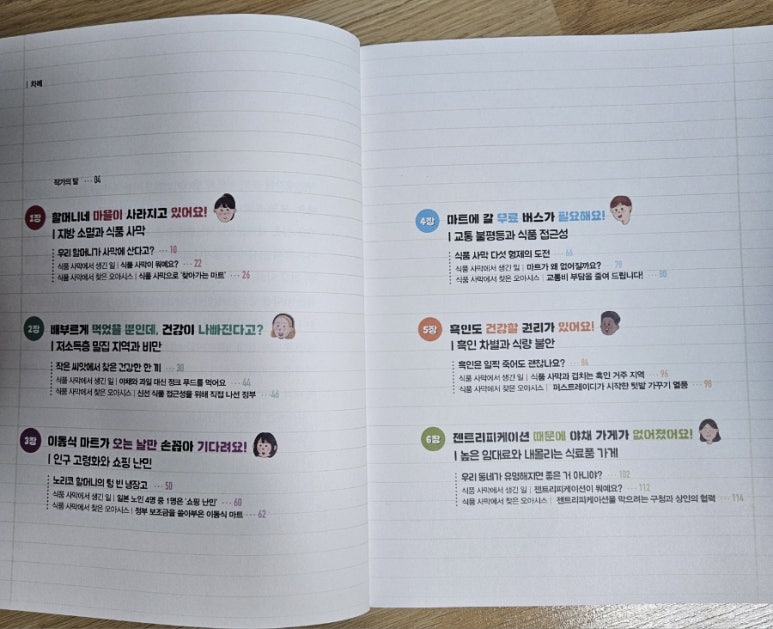 차례
작가의 말 ···· 04
1장 할머니네 마을이 사라지고 있어요!
| 지방 소멸과 식품 사막
우리 할머니가 사막에 산다고? ···· 10
식품 사막에서 생긴 일 | 식품 사막이 뭐예요? ···· 22
식품 사막에서 찾은 오아시스 | 식품 사막으로 '찾아가는 마트' ···· 26
2장 배부르게 먹었을 뿐인데, 건강이 나빠진다고?
| 저소득층 밀집 지역과 비만
작은 씨앗에서 찾은 건강한 한 끼 ···· 30
식품 사막에서 생긴 일 | 야채와 과일 대신 정크 푸드를 먹어요 ···· 44
식품 사막에서 찾은 오아시스 | 신선 식품 접근성을 위해 직접 나선 정부 ···· 46
3장 이동식 마트가 오는 날만 손꼽아 기다려요!
| 인구 고령화와 쇼핑 난민
노리코 할머니의 텅 빈 냉장고 ···· 50
식품 사막에서 생긴 일 | 일본 노인 4명 중 1명은 '쇼핑 난민' ···· 60
식품 사막에서 찾은 오아시스 | 정부 보조금을 쏟아부은 이동식 마트 ···· 62
4장 마트에 갈 무료 버스가 필요해요!
| 교통 불평등과 식품 접근성
식품 사막 다섯 형제의 도전 ···· 66
식품 사막에서 생긴 일 | 마트가 왜 없어질까요? ···· 78
식품 사막에서 찾은 오아시스 | 교통비 부담을 줄여 드립니다! ···· 80
5장 흑인도 건강할 권리가 있어요!
| 흑인 차별과 식량 불안
흑인은 일찍 죽어도 괜찮나요? ···· 84
식품 사막에서 생긴 일 | 식품 사막과 겹치는 흑인 거주 지역 ···· 96
식품 사막에서 찾은 오아시스 | 퍼스트레이디가 시작한 텃밭 가꾸기 열풍 ···· 98
6장 젠트리피케이션 때문에 야채 가게가 없어졌어요!
| 높은 임대료와 내몰리는 식료품 가게
우리 동네가 유명해지면 좋은 거 아니야? ···· 102
식품 사막에서 생긴 일 | 젠트리피케이션이 뭐예요? ···· 112
식품 사막에서 찾은 오아시스 | 젠트리피케이션을 막으려는 구청과 상인의 협력 ···· 114